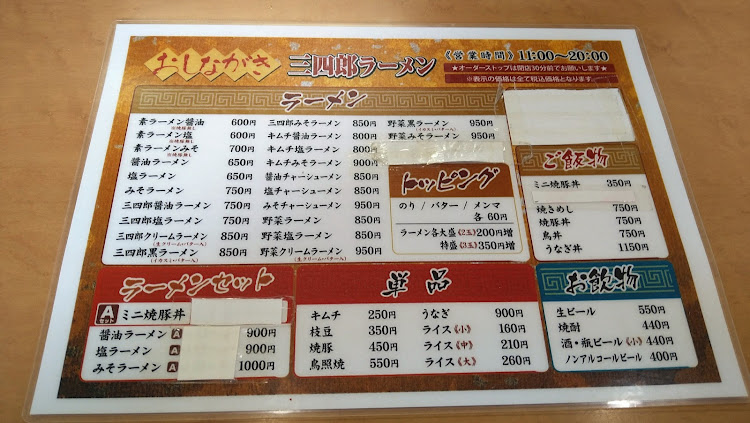 おしながき 三四郎ラーメン
《営業時間》11:00~20:00
★オーダーストップは閉店30分前でお願いします★
※表示の価格は全て税込価格となります。
ラーメン
素ラーメン醤油 600円
※焼豚無し
素ラーメン塩 600円
※焼豚無し
素ラーメンみそ 700円
※焼豚無し
醤油ラーメン 650円
塩ラーメン 650円
みそラーメン 750円
三四郎醤油ラーメン 750円
三四郎塩ラーメン 750円
三四郎クリームラーメン 850円
(生クリーム・バター入)
三四郎黒ラーメン 850円
(イカスミ・バター入)
三四郎みそラーメン 850円
キムチ醤油ラーメン 800円
キムチ塩ラーメン 800円
キムチみそラーメン 900円
醤油チャーシューメン 850円
塩チャーシューメン 850円
みそチャーシューメン 950円
野菜ラーメン 850円
野菜塩ラーメン 850円
野菜クリームラーメン 950円
(生クリーム・バター入)
野菜黒ラーメン 950円
(イカスミ・バター入)
野菜みそラーメン 950円
トッピング
のり / バター / メンマ
各 60円
ラーメン各大盛《2玉》200円増
特盛《3玉》350円増
ご飯物
ミニ焼豚丼 350円
焼きめし 750円
焼豚丼 750円
鳥丼 750円
うなぎ丼 1150円
ラーメンセット
Aセット ミニ焼豚丼
醤油ラーメン A 900円
塩ラーメン A 900円
みそラーメン A 1000円
単品
キムチ 250円
枝豆 350円
焼豚 450円
鳥照焼 550円
うなぎ 900円
ライス《小》 160円
ライス《中》 210円
ライス《大》 260円
お飲物
生ビール 550円
焼酎 440円
酒・瓶ビール《小》 440円
ノンアルコールビール 400円